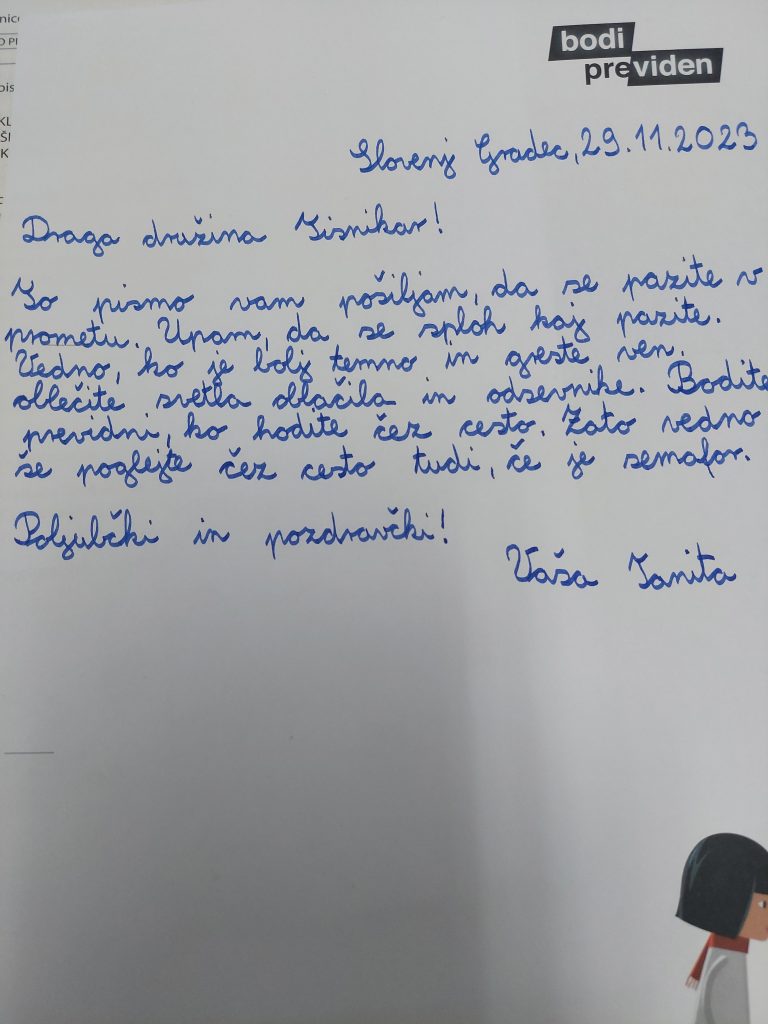 bodi
previden
Slovenj Gradec, 29.11.2023
Draga družina Tisnikar!
To pismo vam pošiljam, da se pazite v
prometu. Upam, da se sploh kaj pazite.
Vedno, ko je bolj temno in greste ven.
oblečite svetla oblačila in odsevnike. Bodite
previdni, ko hodite čez cesto. Zato vedno
še poglejte čez cesto tudi, če je semafor.
Poljubčki in pozdravčki!
Vaša Tanita